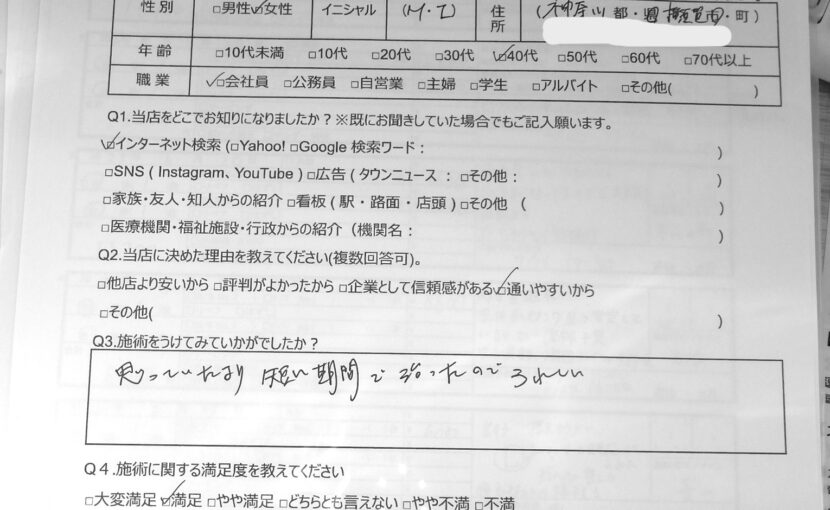 性別 □男性☑女性 イニシャル (M・I) 住所 (神奈川 都・県 相模原市・町)
年齢 □10代未満 □10代 □20代 □30代 ☑40代 □50代 □60代 □70代以上
職業 ☑会社員 □公務員 □自営業 □主婦 □学生 □アルバイト □その他( )
Q1.当店をどこでお知りになりましたか？※既にお聞きしていた場合でもご記入願います。
☑インターネット検索 (□Yahoo! □Google 検索ワード： )
□SNS ( Instagram、YouTube ) □広告 ( タウンニュース ： □その他： )
□家族・友人・知人からの紹介 □看板 ( 駅・路面・店頭 ) □その他 ( )
□医療機関・福祉施設・行政からの紹介（機関名： )
Q2.当店に決めた理由を教えてください(複数回答可)。
□他店より安いから □評判がよかったから □企業として信頼感がある ☑通いやすいから
□その他( )
Q3.施術をうけてみていかがでしたか？
思っていたより 短い期間で治ったので うれしい
Q４.施術に関する満足度を教えてください
□大変満足 ☑満足 □やや満足 □どちらとも言えない □やや不満 □不満